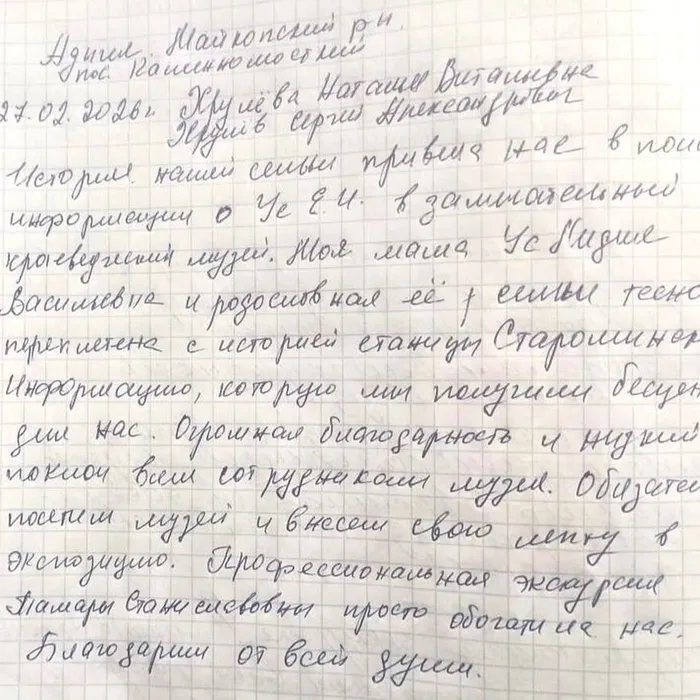 Адыгея. Майкопский р-н.
пос. Каменномостский
27.02.2026г. Хрулёва Наталья Витальевна
Хрулёв Сергей Александрович
История нашей семьи привела нас в пои
информации о Ус Е.И. в замечательный
краеведческий музей. Моя мама Ус Лидия
Васильевна и родословная её семьи тесно
переплетена с историей станицы Староминск
Информацию, которую мы получили бесцен
для нас. Огромная благодарность и низкий
поклон всем сотрудникам музея. Обязател
посетим музей и внесем свою лепту в
экспозицию. Профессиональная экскурсия
Тамары Станиславовны просто обогатила нас.
Благодарим от всей души.